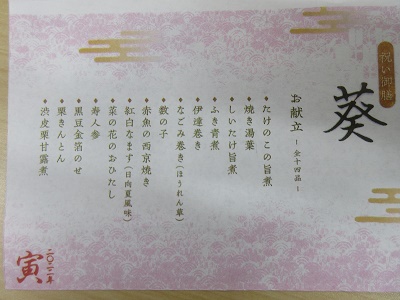 祝い御膳
葵
お献立 ~全十四品~
◆たけのこの旨煮
◆焼き湯葉
◆しいたけ旨煮
◆ふき青煮
◆伊達巻き
◆なごみ巻き(ほうれん草)
◆数の子
◆赤魚の西京焼き
◆紅白なます(日向夏風味)
◆菜の花のおひたし
◆寿人参
◆黒豆金箔のせ
◆栗きんとん
◆渋皮栗甘露煮
二〇二二年
寅